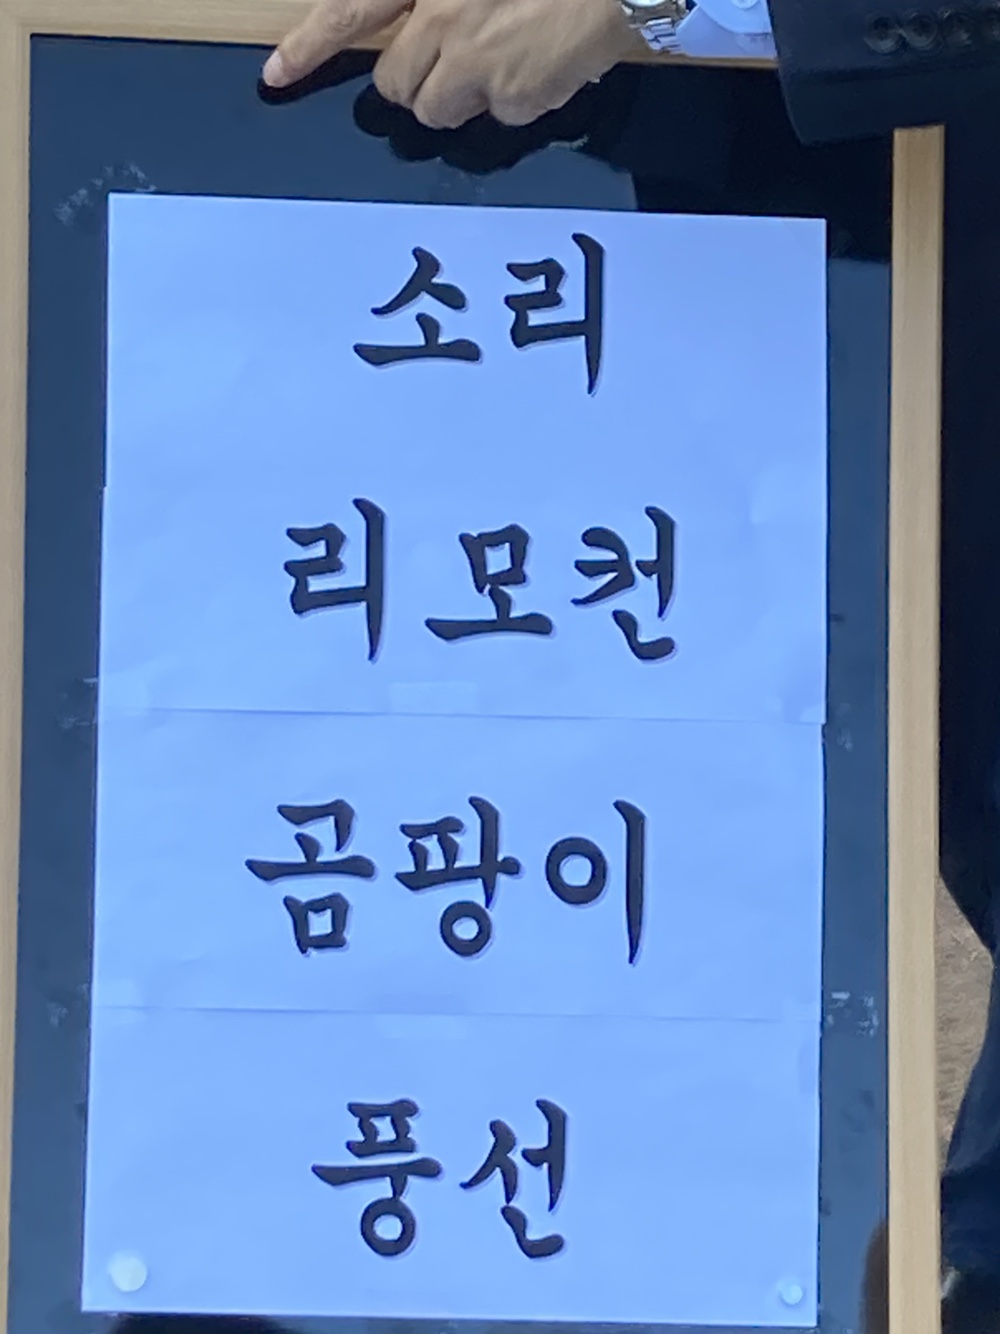 소리
리모컨
곰팡이
풍선